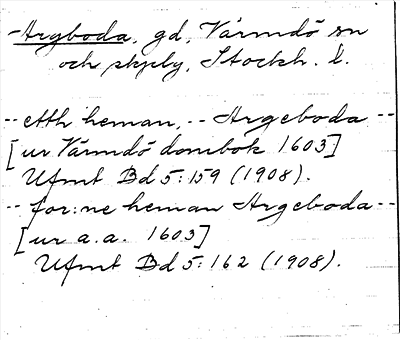 - Argboda, gd, Värmdö sn
och skply, Stockh. l.
-- etth heman, -- Argeboda --
[ur Värmdö dombok 1603]
Ufmt Bd 5:159 (1908).
-- for:ne heman Argeboda --
[ur a.a. 1603]
Ufmt Bd 5:162 (1908).